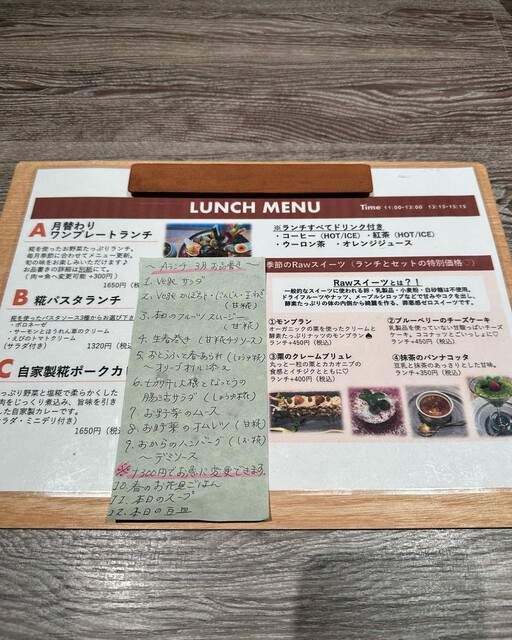 LUNCH MENU
Time 11:00-13:00 13:15-15:15
A 月替わり
ワンプレートランチ
糀を使ったお野菜たっぷりランチ。
毎月季節に合わせてメニュー更新。
旬の味をお楽しみいただけます♪
お品書きの詳細は別紙にて。
(肉⇒魚へ変更可能 +300円)
1650円(税込
B 糀パスタランチ
糀を使ったパスタソース3種からお選び下さ
・ボロネーゼ
・サーモンとほうれん草のクリーム
・えびのトマトクリーム
(サラダ付き)
1320円(税込
C 自家製糀ポークカ
っぷり野菜と塩糀で柔らかくした
肉をじっくり煮込み、旨味を引き
した自家製カレーです。
サラダ・ミニデリ付き)
1650円(税込
※ランチすべてドリンク付き
・コーヒー(HOT/ICE)・紅茶(HOT/ICE)
・ウーロン茶 ・オレンジジュース
季節のRawスイーツ(ランチとセットの特別価格♡)
Rawスイーツとは?!
一般的なスイーツに使われる卵・乳製品・小麦粉・白砂糖は不使用。
ドライフルーツやナッツ、メープルシロップなどで甘みやコクを出し、
酵素たっぷりの体の内側から綺麗を作る、罪悪感ゼロスイーツです。
①モンブラン
オーガニックの栗を使ったクリームと
酵素たっぷりナッツのモンブラン♠
ランチ+450円(税込)
②ブルーベリーのチーズケーキ
乳製品を使っていない甘酸っぱいチーズ
ケーキ。ココナッツとどこいっしょ♡
ランチ+450円(税込)
③栗のクレームブリュレ
丸っと一粒の栗とカカオニブの
食感とイチジクとともに♡
ランチ+400円(税込)
④抹茶のパンナコッタ
豆乳と抹茶のあっさりとした甘味。
ランチ+350円(税込)
～Aランチ 3月 お品書き～
1. Vegeサラダ
3. 旬のフルーツスムージー
(甘糀)
4. 生春巻き (甘糀チリソース)
5. おとうふと春あられ (しょうゆ糀)
～オリーブオイル添え～
6. 切り干し大根となっとうの
腸活サラダ (しょうゆ糀)
7. お野菜のムース
8. お野菜のオムレツ (甘糀)
9. おからのハンバーグ (しお糀)
～デミソース
※+300円でお魚に変更できます。
10. 春のお花見ごはん
11. 本日のスープ
12. 本日の豆皿